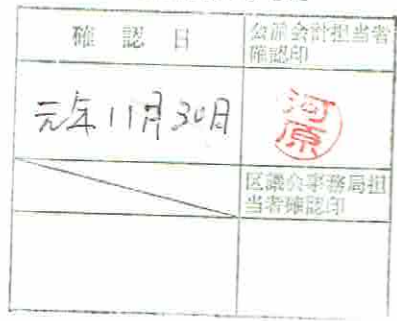 確認日
公派会計担当者
確認印
元年11月30日
河原
区議会事務局担
当者確認印